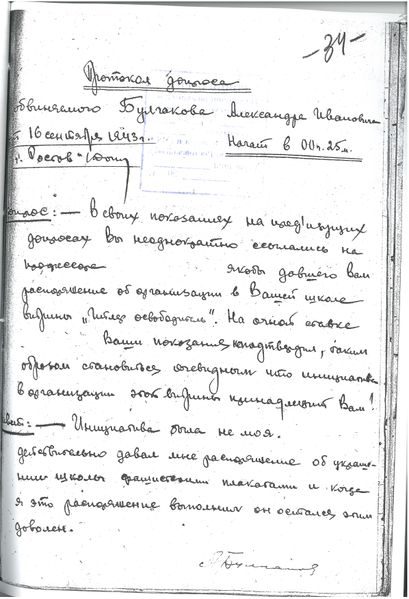 -34-
Протокол допроса
обвиняемого Булгакова Александра Ивановича
от 16 сентября 1943 г. Начат в 00 ч. 25 м.
г. Ростов "Дон"
Вопрос: — В своих показаниях на предидущих
допросах Вы неоднократно ссылались на
профессора якобы давшего Вам
распоряжение об организации в Вашей школе
витрины „Гитлер освободитель". На очной ставке
Ваши показания не подтвердил, таким
образом становиться очевидным что инициатива
в организации этой витрины принадлежит Вам!
Ответ: — Инициатива была не моя.
действительно давал мне распоряжение об украше-
нии школы фашистскими плакатами и когда
я это распоряжение выполнил он остался этим
доволен.